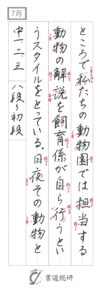 7月
ところで私たちの動物園では担当する
動物の解説を飼育係が自ら行うとい
うスタイルをとっている。日夜その動物と
中一二三 八段~初段
書道総研